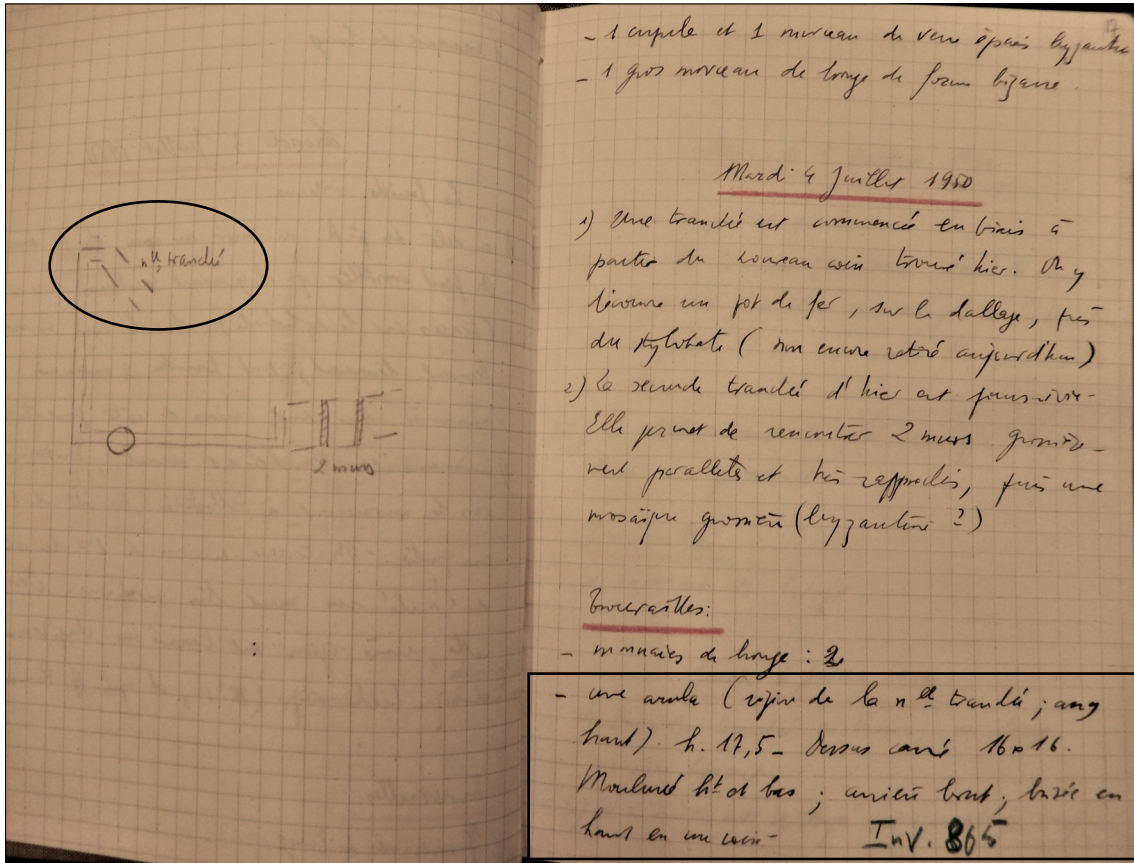 nlle tranchée
2 murs
17
- 1 cupule et 1 morceau de verre épais byzantin
- 1 gros morceau de bronze de forme bizarre.
Mardi 4 Juillet 1950
1) Une tranchée est commencée en biais à
partir du nouveau coin trouvé hier. On y
découvre un pot de fer, sur le dallage, près
du stylobate (non encore retiré aujourd'hui)
2) La seconde tranchée d'hier est poursuivie -
Elle permet de rencontrer 2 murs grossière-
ment parallèles et très rapprochés, puis une
mosaïque grossière (byzantine ?)
Trouvailles:
- monnaies de bronze : 2
- une arula (région de la nlle tranchée ; ang
haut) h. 17,5 - Dessus carré 16 x 16.
Mouluré ht et bas ; arrière brut ; brisée en
haut en un coin -
Inv. 865